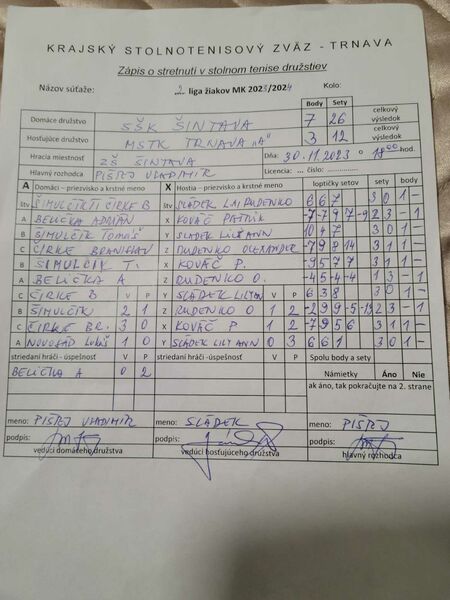 KRAJSKÝ STOLNOTENISOVÝ ZVÄZ - TRNAVA
Zápis o stretnutí v stolnom tenise družstiev
Názov súťaže: 2. liga žiakov MK 2023/2024 Kolo:
Body Sety celkový výsledok
Domáce družstvo SŠK ŠINTAVA 7 26
Hosťujúce družstvo MSTK TRNAVA "A" 3 12 celkový výsledok
Hracia miestnosť ZŠ ŠINTAVA Dňa: 30.11.2023 o 18 00 hod.
Hlavný rozhodca PIŠTEJ VLADIMÍR Licencia: číslo:
A Domáci – priezvisko a krstné meno X Hostia – priezvisko a krstné meno loptičky setov sety body
štv ŠIMULČÍK T/ ČIRKE B štv SLÁDEK L/ RUDENKO 6 6 7 3 0 1 -
A BELICKA ADRIÁN X KOVÁČ PATRIK -7 -7 9 7 -9 2 3 - 1
B ŠIMULČÍK TOMÁŠ Y SLÁDEK LILYANN 10 4 7 3 0 1 -
C ČIRKE BRANISLAV Z RUDENKO OLEXANDER -7 9 8 14 3 1 1 -
B ŠIMULČÍK T. X KOVÁČ P. -9 5 7 7 3 1 1 -
A BELICKA A Z RUDENKO O. -4 5 -4 -4 1 3 - 1
C ČIRKE B V P Y SLÁDEK LILYAN V P 6 3 8 3 0 1 -
B ŠIMULČÍK 2 1 Z RUDENKO O 1 2 -2 9 9 -5 -13 2 3 - 1
C ČIRKE BR. 3 0 X KOVÁČ P 1 2 -7 9 5 6 3 1 1 -
A NOVOSÁD LUKÁŠ 1 0 Y SLÁDEK LILYANN 0 3 6 6 1 3 0 1 -
striedaní hráči -úspešnosť V P striedaní hráči -úspešnosť V P Spolu body a sety
BELICKA A 0 2 Námietky Áno Nie
ak áno, tak pokračujte na 2. strane
meno: PIŠTEJ VLADIMÍR meno: SLÁDEK meno: PIŠTEJ
podpis: podpis: podpis:
vedúci domáceho družstva vedúci hosťujúceho družstva hlavný rozhodca